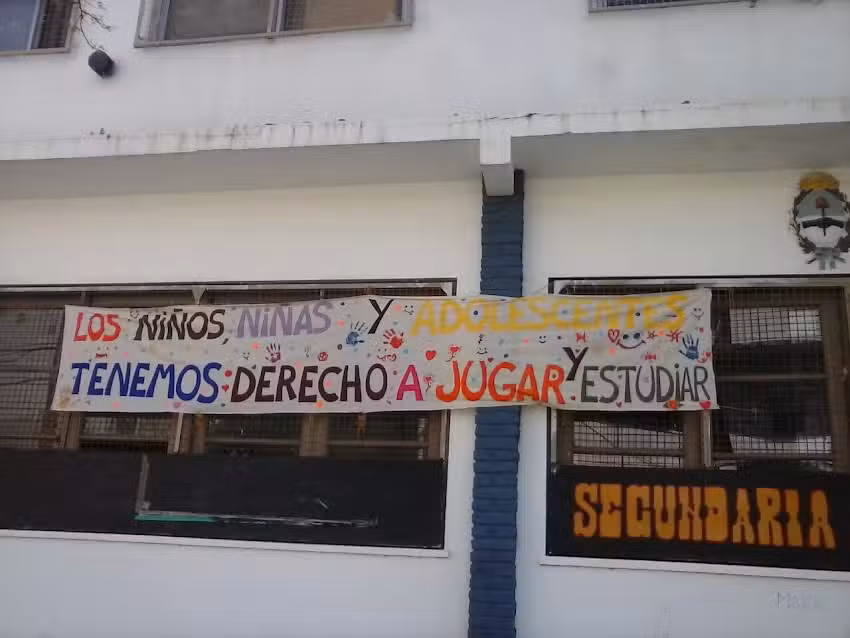 LOS NIÑOS, NIÑAS Y ADOLESCENTES
TENEMOS DERECHO A JUGAR Y ESTUDIAR
SEGUNDARIA